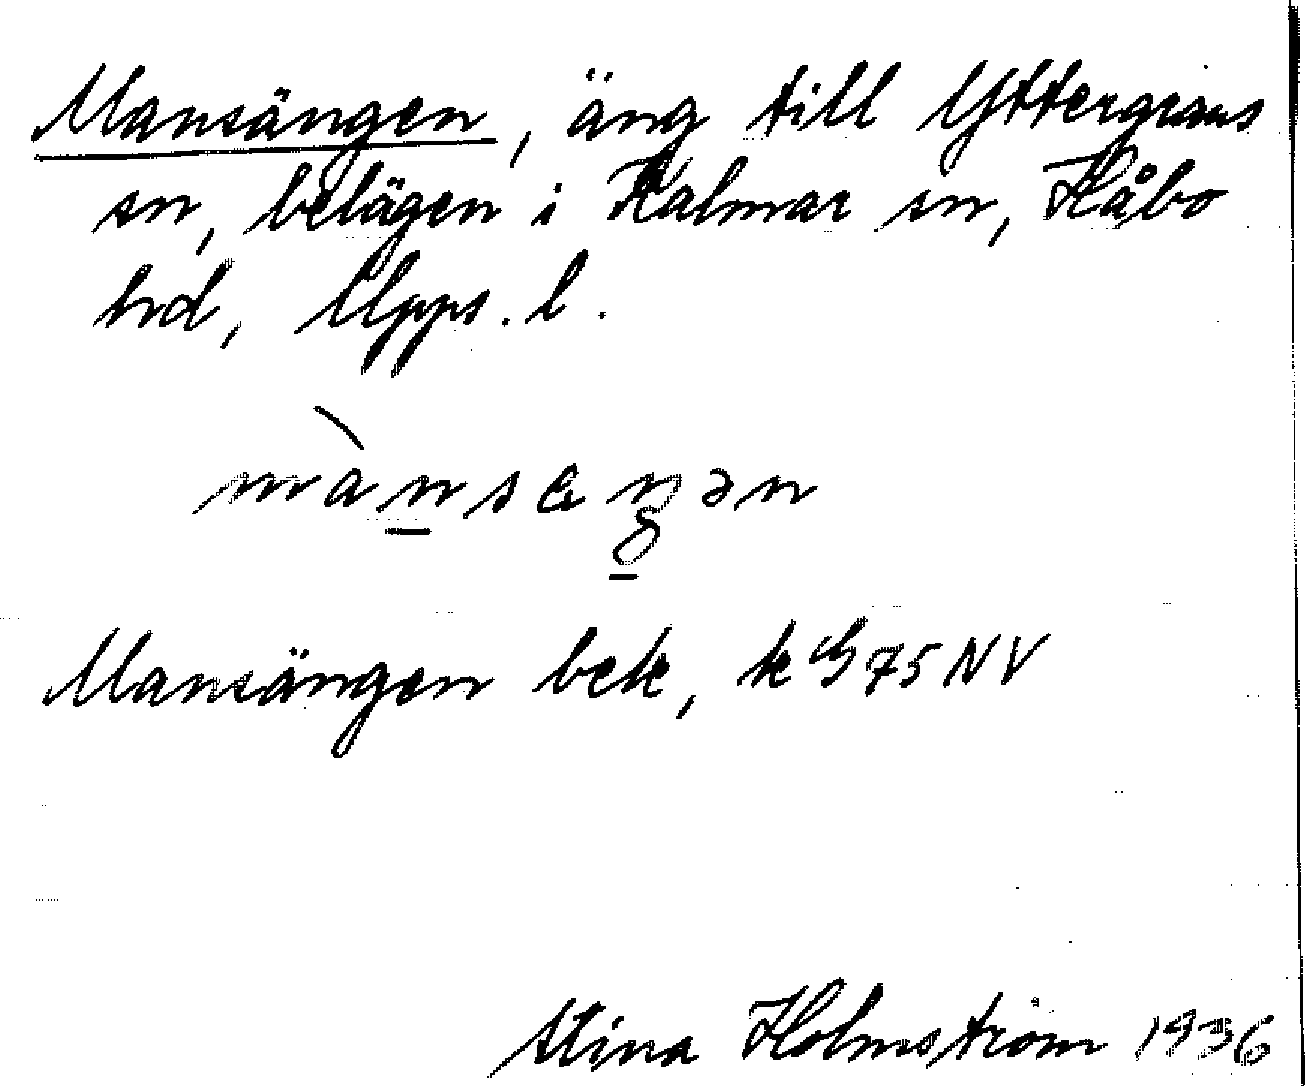 Mansängen, äng till Yttergrans
sn, belägen i Kalmar sn, Håbo
hd, Upps. l.
mànsäŋən
Mansängen bek, k G 75 NV
Stina Holmström 1936